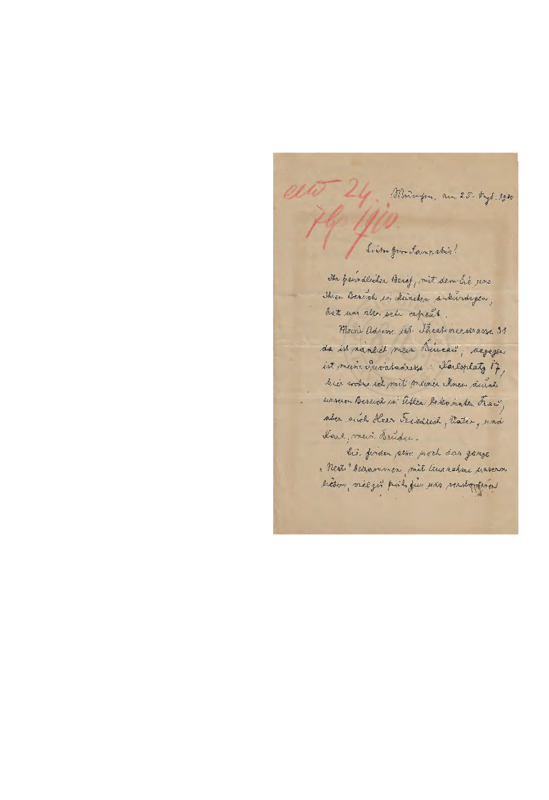 München, am 25. Sept. 1910
24.
1910.
Lieber Herr
Ihr freundlicher Brief, mit dem Sie uns
Ihren Besuch in München ankündigen,
hat uns alle sehr erfreut.
Meine Adresse ist Theatinerstrasse 31
da ist nämlich mein Bureau, dagegen
ist meine Privatadresse: Karlsplatz 17,
hier wohne ich mit meiner Ihnen durch
unseren Besuch in Athen bekannten Frau,
aber auch Herr Friedrich, Vater, und
Karl, mein Bruder.
Sie finden also noch das ganze
„Nest" beisammen, mit Ausnahme unseres
lieben, viel zu früh für uns verstorbenen